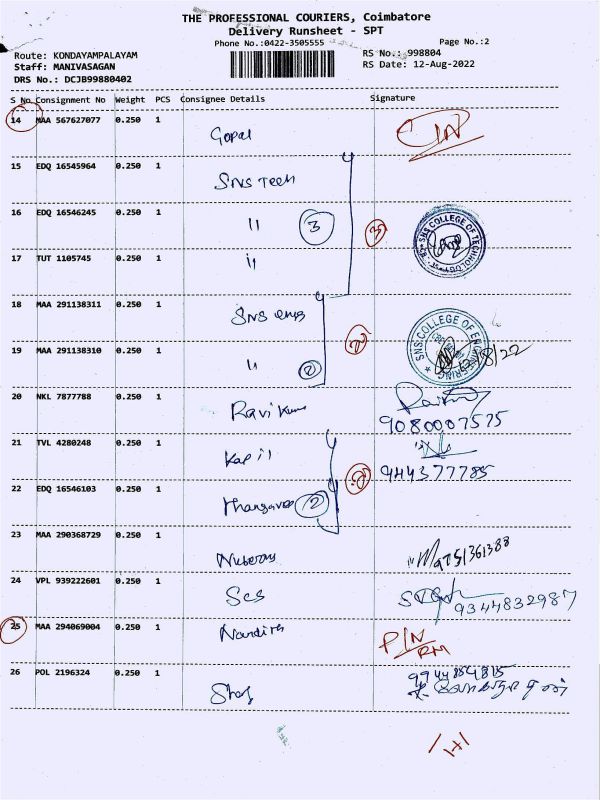 THE PROFESSIONAL COURIERS, Coimbatore
Delivery Runsheet - SPT
Phone No.:0422-3505555 Page No.:2
Route: KONDAYAMPALAYAM RS No.: 998804
Staff: MANIVASAGAN RS Date: 12-Aug-2022
DRS No.: DCJB99880402
S No Consignment No Weight PCS Consignee Details Signature
14 MAA 567627077 0.250 1 Gopal
15 EDQ 16545964 0.250 1 SNS Tech
16 EDQ 16546245 0.250 1 11 3 3 SNS COLLEGE OF TECHNOLOGY
17 TUT 1105745 0.250 1 11
18 MAA 291138311 0.250 1 SNS
19 MAA 291138310 0.250 1 11 2 SNS COLLEGE OF ENGINEERING 12/8/22
20 NKL 7877788 0.250 1 Ravi Kumar 9080007575
21 TVL 4280248 0.250 1 Kapil 944377785
22 EDQ 16546103 0.250 1 2
23 MAA 290368729 0.250 1
24 VPL 939222601 0.250 1 Scs 9344832987
25 MAA 294069004 0.250 1 P/N
RM
26 POL 2196324 0.250 1